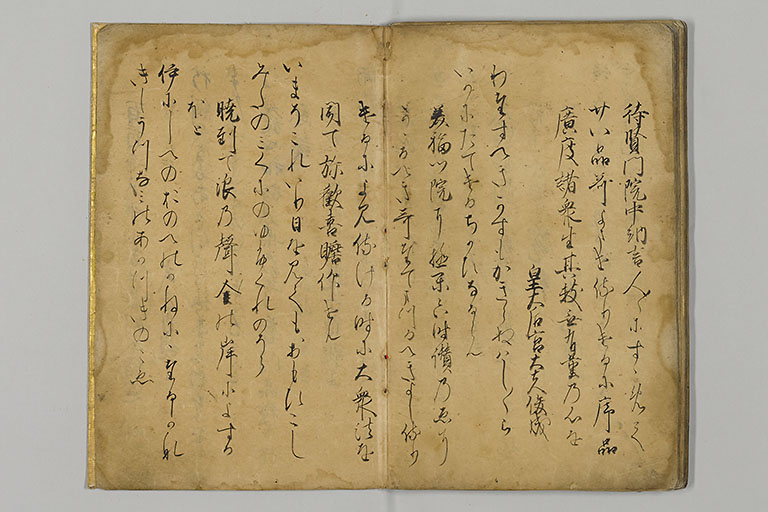 待賢門院中納言人々にすゝめて
廿八品哥よませ侍りけるに序品
廣度諸衆生其数無有量乃心を
皇太后宮大夫俊成
わたすへきかすもかきらぬはしはしら
いかにたてけるちかひなるらん
美福門院に極楽六時讃乃ゑに
かゝるへき哥奉るへきよし侍り
けるによみ侍ける時に大衆法を
聞て弥歓喜瞻仰せん
いまそこれいり日を見てもおもひこし
みたのみくにのゆふくれのそら
暁到て浪乃聲金の岸によする
ほと
いにしへのおのへのかねににたるかな
きしうつなみのあかつきのこゑ